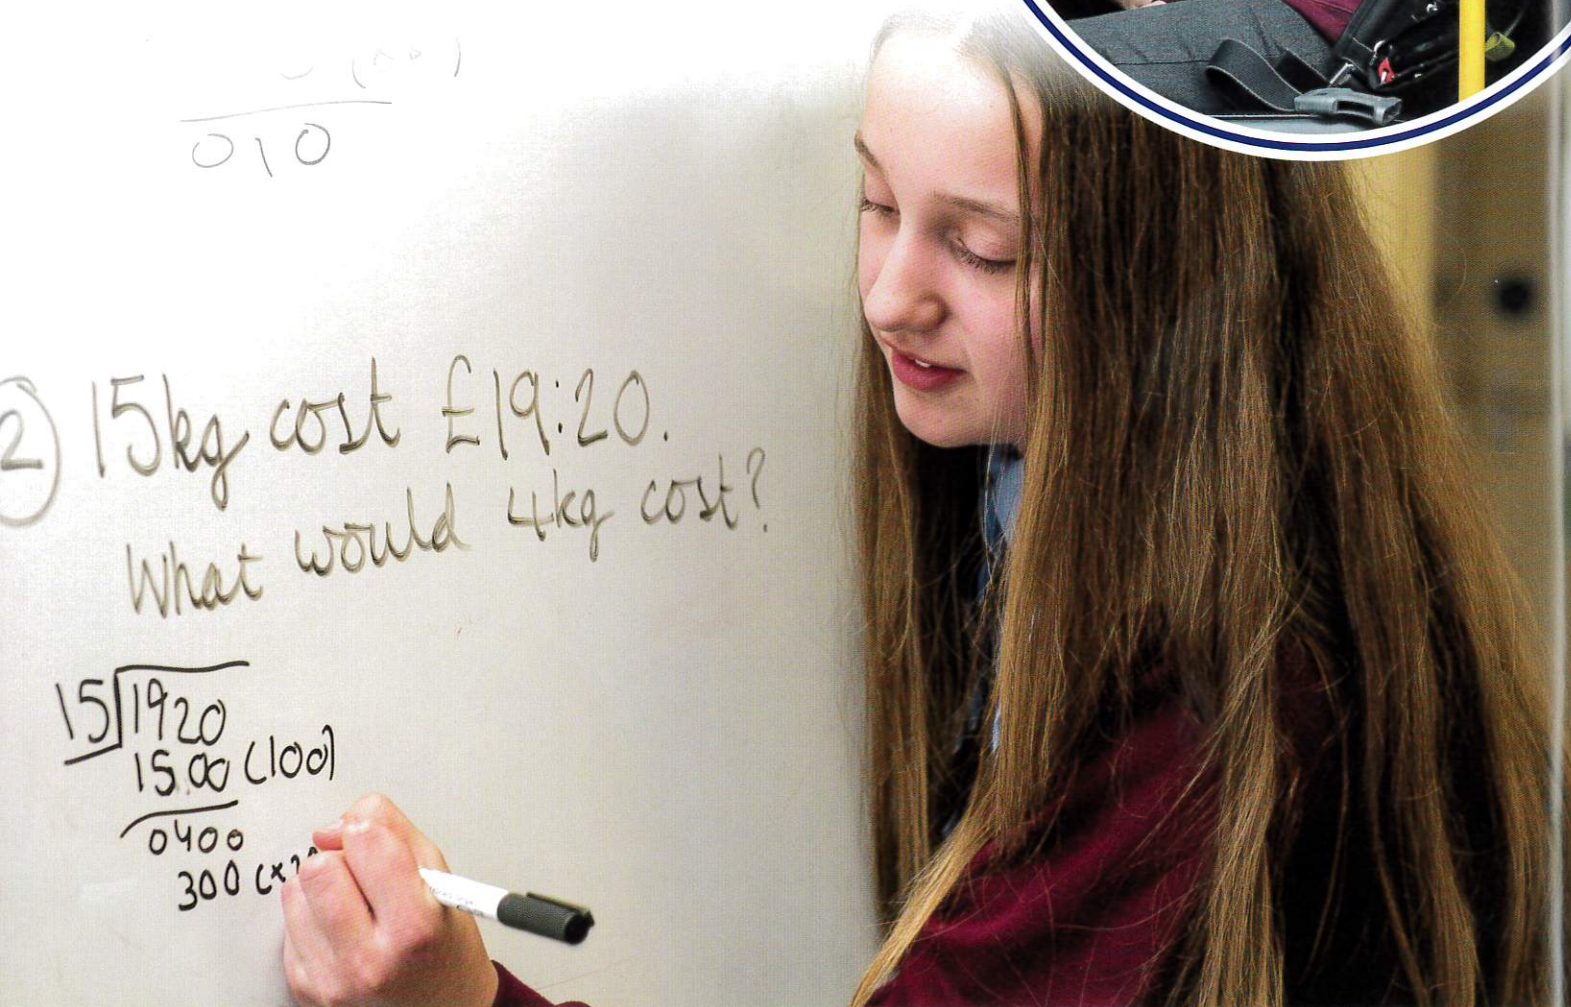 010
2 15kg cost £19:20.
What would 4kg cost?
15 1920
15.00 (100)
0400
300 (×2